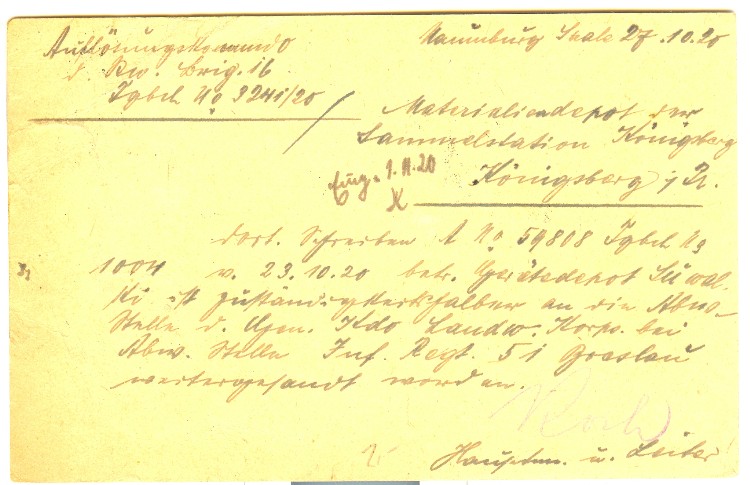 Auflösungskommando
d. Rw. Brig. 16
Tgbch No 3241/20
Naumburg Saale 27.10.20
Materialiendepot der
Sammelstation Königsberg
Königsberg i/Pr.
Eing. 1.11.20
dort. Schreiben A No 59808 Tgbch No
1004 v. 23.10.20 betr. Gerätedepot Suwal-
ki ist zuständigkeitshalber an die Abw.-
Stelle d. Gen. Kdo Landw. Korps. bei
Abw. Stelle Inf. Regt. 51 Breslau
weitergesandt worden.
Koch
Hauptm. u. Leiter